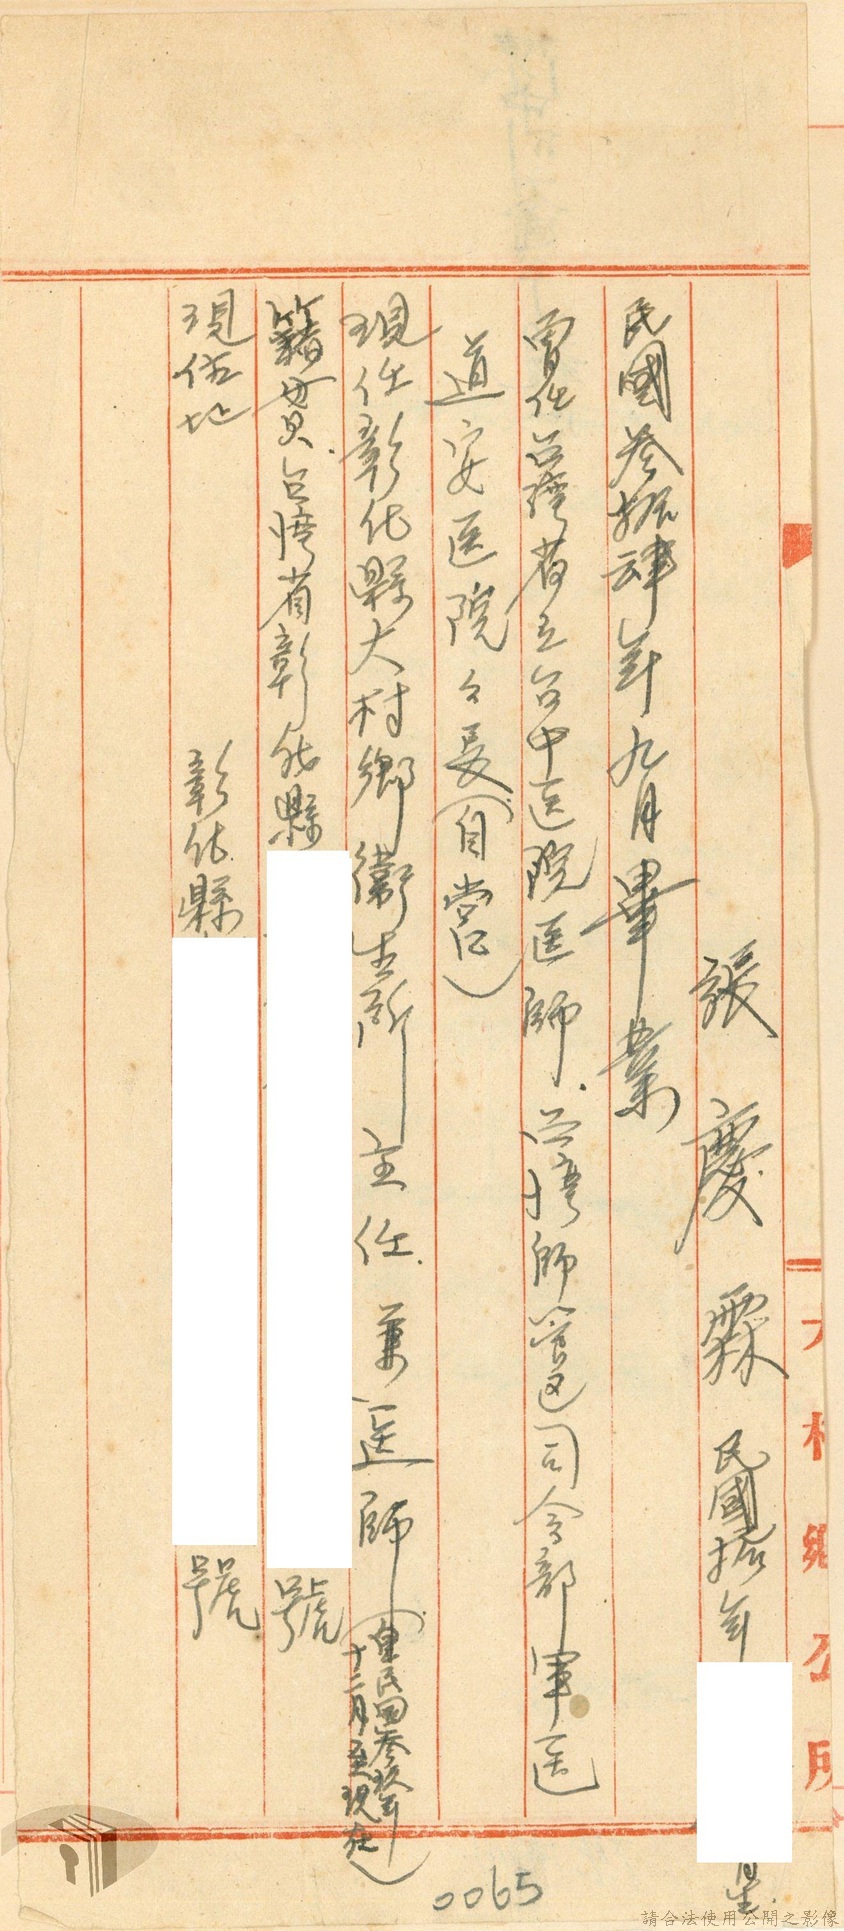 大村鄉公所
張慶霖 民國拾年 月生
民國叁拾肆年九月畢業
曾任台灣省立台中医院医師.台湾師管区司令部軍医
道安医院々長(自営)
現任彰化縣大村鄉衛生所主任.兼医師(自民国叁玖年十二月至現在)
籍貫.台湾省彰化縣 號
現住地 彰化縣 號
0065
請合法使用公開之影像